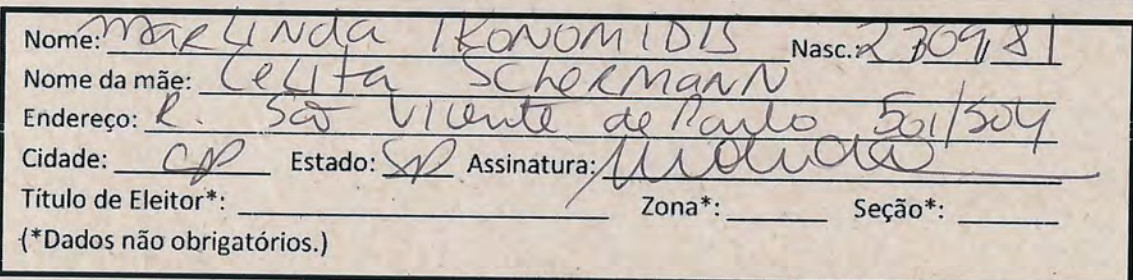 Nome: MARLINDA IKONOMIDIS Nasc.: 23 09 81
Nome da mãe: Celita SCHERMANN
Endereço: R. São Vicente de Paulo 501/504
Cidade: CP Estado: SP Assinatura:
Título de Eleitor*: Zona*: Seção*:
(*Dados não obrigatórios.)